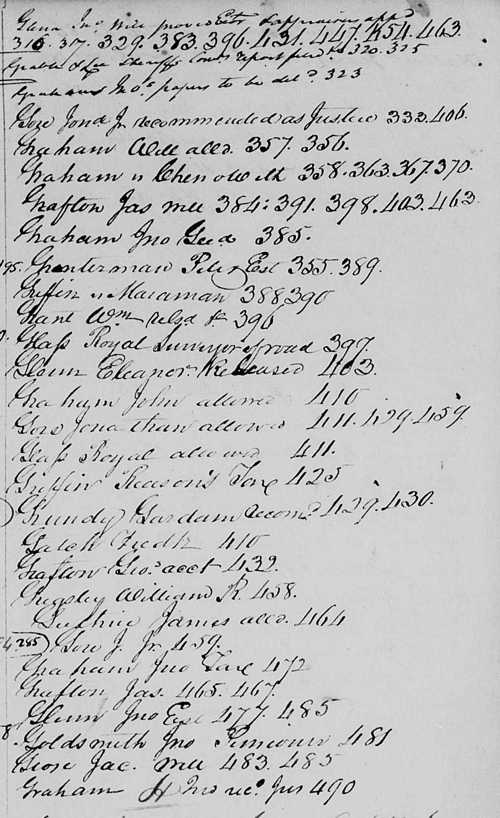 Glenn Jno. Will proved Extr & appraisers appd
316. 317. 329. 383. 396. 431. 447. 454. 463.
& Co Sheriffs Court report filed &c 320. 325
Grahams Jno's papers to be deld 323
Gore Jona Jr recommended as Justice 333.406.
Graham Will alld. 357. 356.
Graham v Chenowith 358.363.367.370.
Grafton Jas mee 384: 391. 398.403.463
Graham Jno Geed 385.
195. Grunterman Peter Est 355.389.
Griffin v Maraman 388 390
Grant Wm relsd &c 396
Glass Royal surveyor of road 397
Glenn Eleanor. Released 403.
Graham John allowed 410
Gore Jonathan allowed 411. 429.459.
Glass Royal allowed 411.
Griffin Reason's Tax 425
Grundy Gardam recomd 429.430.
Gatch Fredk 410
Grafton Geo. acct 432.
Grigsby William R. 458.
Guthrie James alld. 464
285 Gore J. Jr. 459.
Graham Jno Tax 472
Grafton Jas. 465. 467.
Glenn Jno Est 477. 485
8. Goldsmith Jno Pensioner 481
Grose Jac. mee 483. 485
Graham Jno recd Jus 490